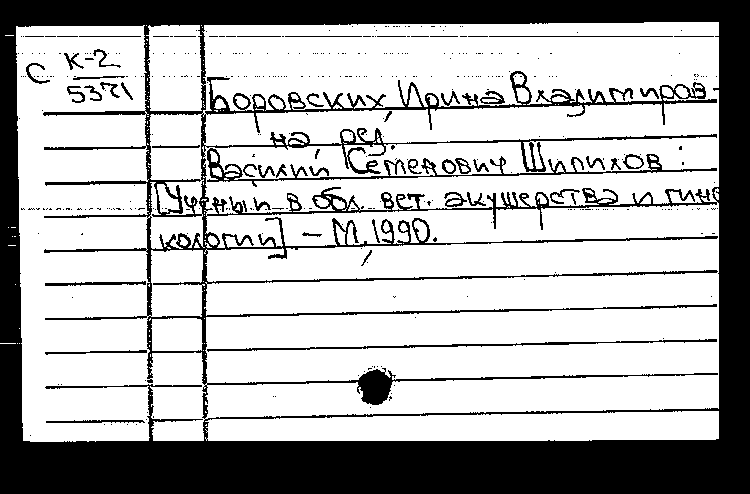 С К-2
5371
Боровских, Ирина Владимиров-
на, ред.
Василий Семенович Шипилов :
[Ученый в обл. вет. акушерства и гине
кологии]. – М., 1990.